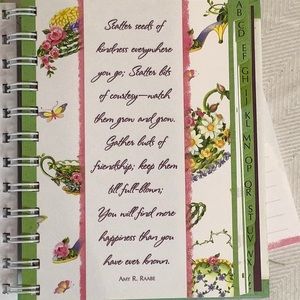 Scatter seeds of
kindness everywhere
you go; Scatter bits
of courtesy—watch
them grow and grow.
Gather buds of
friendship; keep them
till full-blown;
You will find more
happiness than you
have ever known.
AMY R. RAABE
AB
CD
EF
GH
IJ
KL
MN
OP
QR
ST
UV